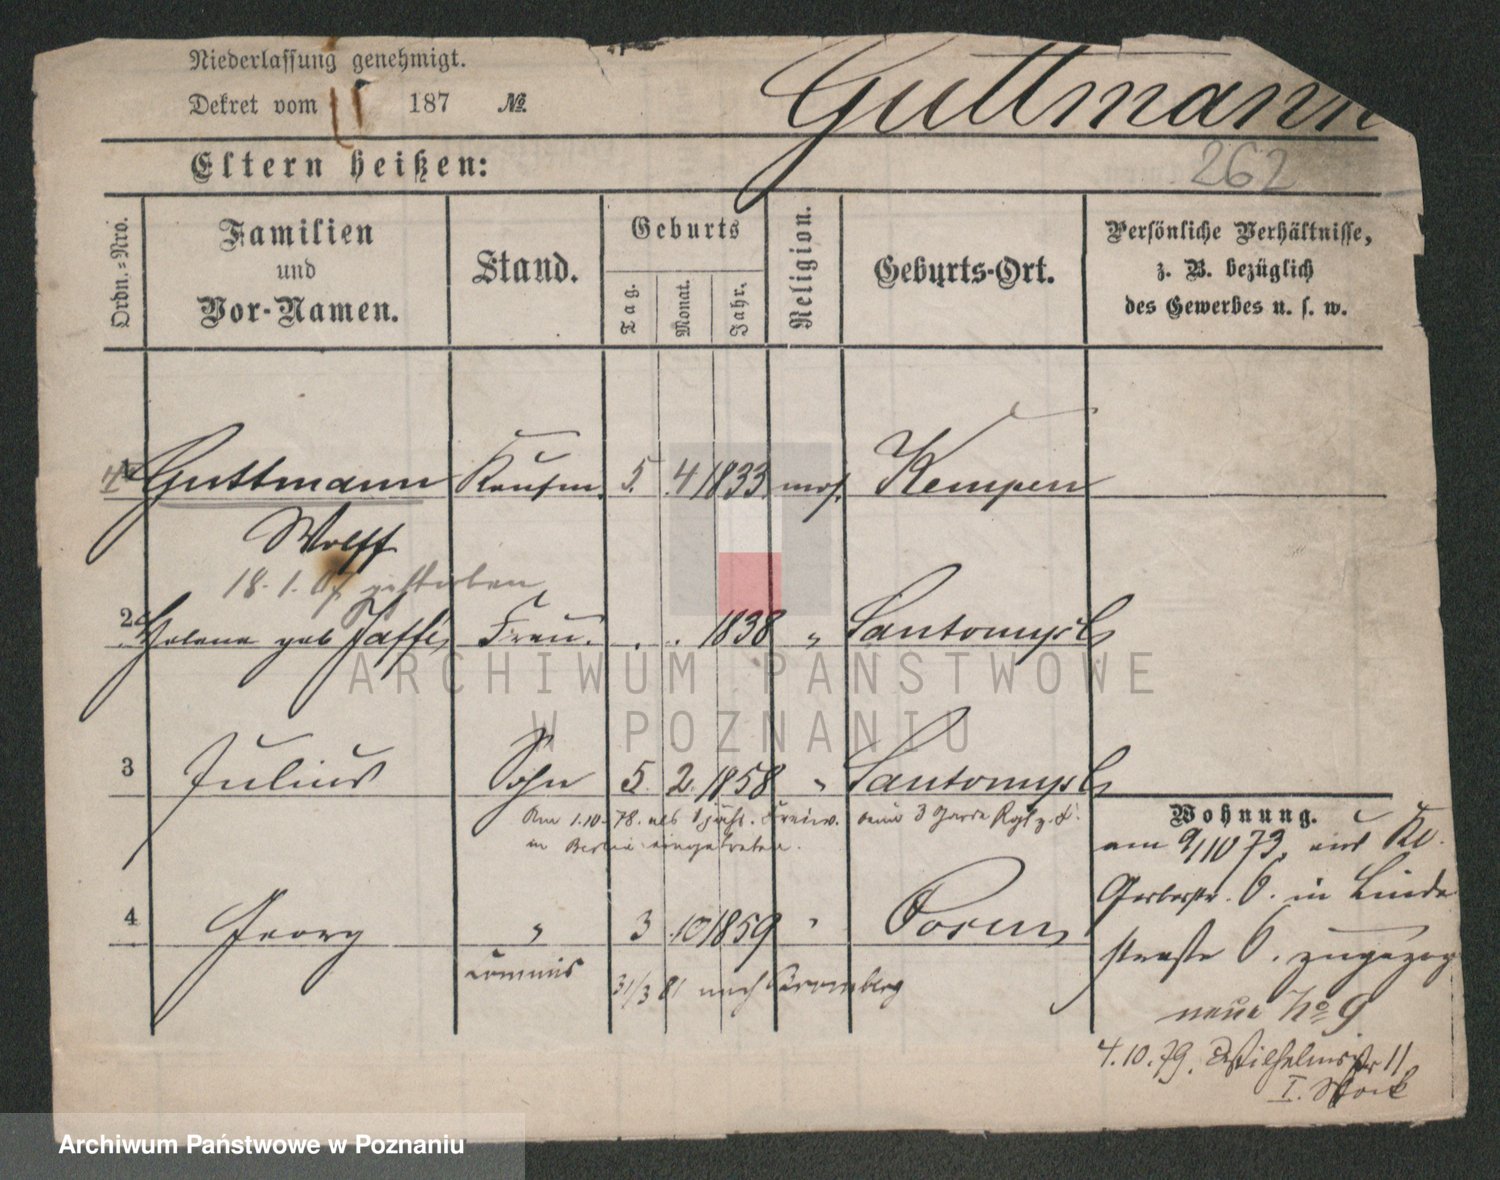 Niederlassung genehmigt.
Dekret vom 187 №
Guttmann
262
Eltern heißen:
Ordn.=Nro.
Familien
und
Vor-Namen.
Stand.
Geburts
Tag.
Monat.
Jahr.
Religion.
Geburts-Ort.
Persönliche Verhältnisse,
z. B. bezüglich
des Gewerbes u. s. w.
1 Guttmann Kaufm. 5. 4 1833 mos. Kempen
Wolff
18. 1. 07 gestorben
2 Helene geb Jaffe, Frau. . . 1838 „ Santomysl
ARCHIWUM PAŃSTWOWE
W POZNANIU
3 Julius Sohn 5. 2. 1858 „ Santomysl
Am 1.10.78. als 1jähr. Freiw. beim 3 Garde Rgt z. F.
in Berlin eingetreten.
4 Georg „ 3 10 1859 „ Posen
Commis
31/3 81 nach Bromberg
Wohnung.
am 9/10 73, aus Kl.
Gerberstr. 6. in Linden
strasse 6. zugezog
neue No 9
4.10.79. Wilhelmstr 11
I. Stock
Archiwum Państwowe w Poznaniu